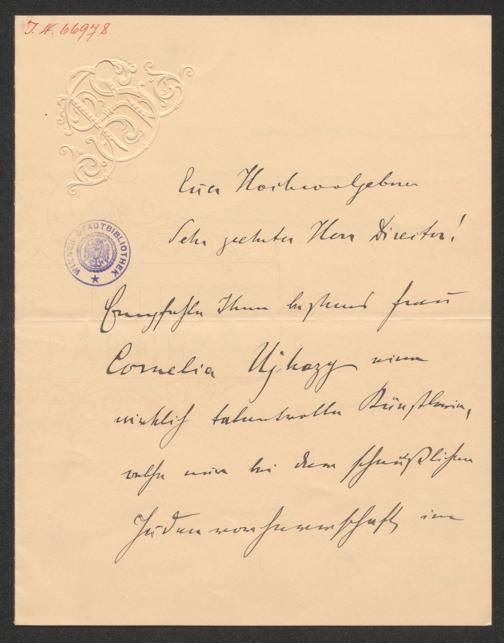 J. N. 66978
WIENER STADTBIBLIOTHEK
Euer Hochwolgeboren
Sehr geehrter Herr Director!
Empfehle Ihnen bestens Frau
Cornelia Ujhazy eine
wirklich talentvolle Künstlerin,
welche nur bei dem scheußlichen
Juden im